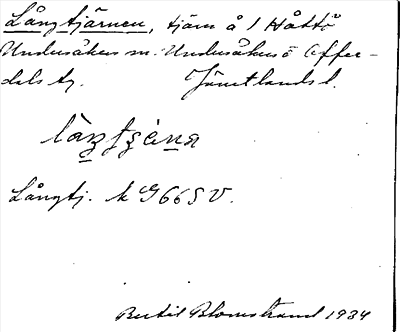 Långtjärnen, tjärn å 1 Håttö
Undersåkers sn. Undersåkers o Offer-
dals tg. Jämtlands l.
Långtj. k G665V.
Bertil Blomstrand 1934